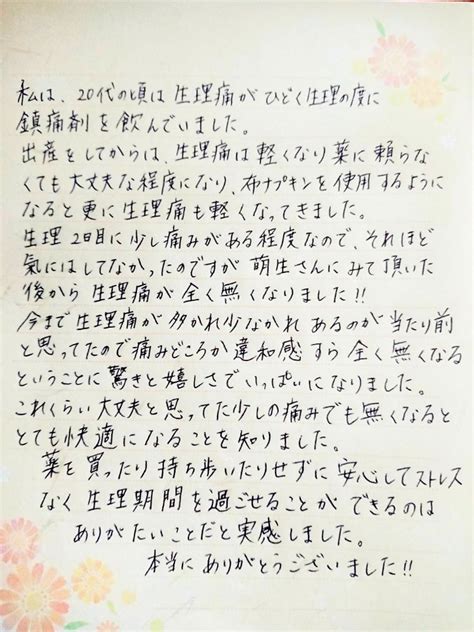 私は、20代の頃は生理痛がひどく生理の度に
鎮痛剤を飲んでいました。
出産をしてからは、生理痛は軽くなり薬に頼らな
くても大丈夫な程度になり、布ナプキンを使用するように
なると更に生理痛も軽くなってきました。
生理2日目に少し痛みがある程度なので、それほど
気にはしてなかったのですが萌生さんにみて頂いた
後から生理痛が全く無くなりました!!
今まで生理痛が多かれ少なかれあるのが当たり前
と思ってたので痛みどころか違和感すら全く無くなる
ということに驚きと嬉しさでいっぱいになりました。
これくらい大丈夫と思ってた少しの痛みでも無くなると
とても快適になることを知りました。
薬を買ったり持ち歩いたりせずに安心してストレス
なく生理期間を過ごせることができるのは
ありがたいことだと実感しました。
本当にありがとうございました!!